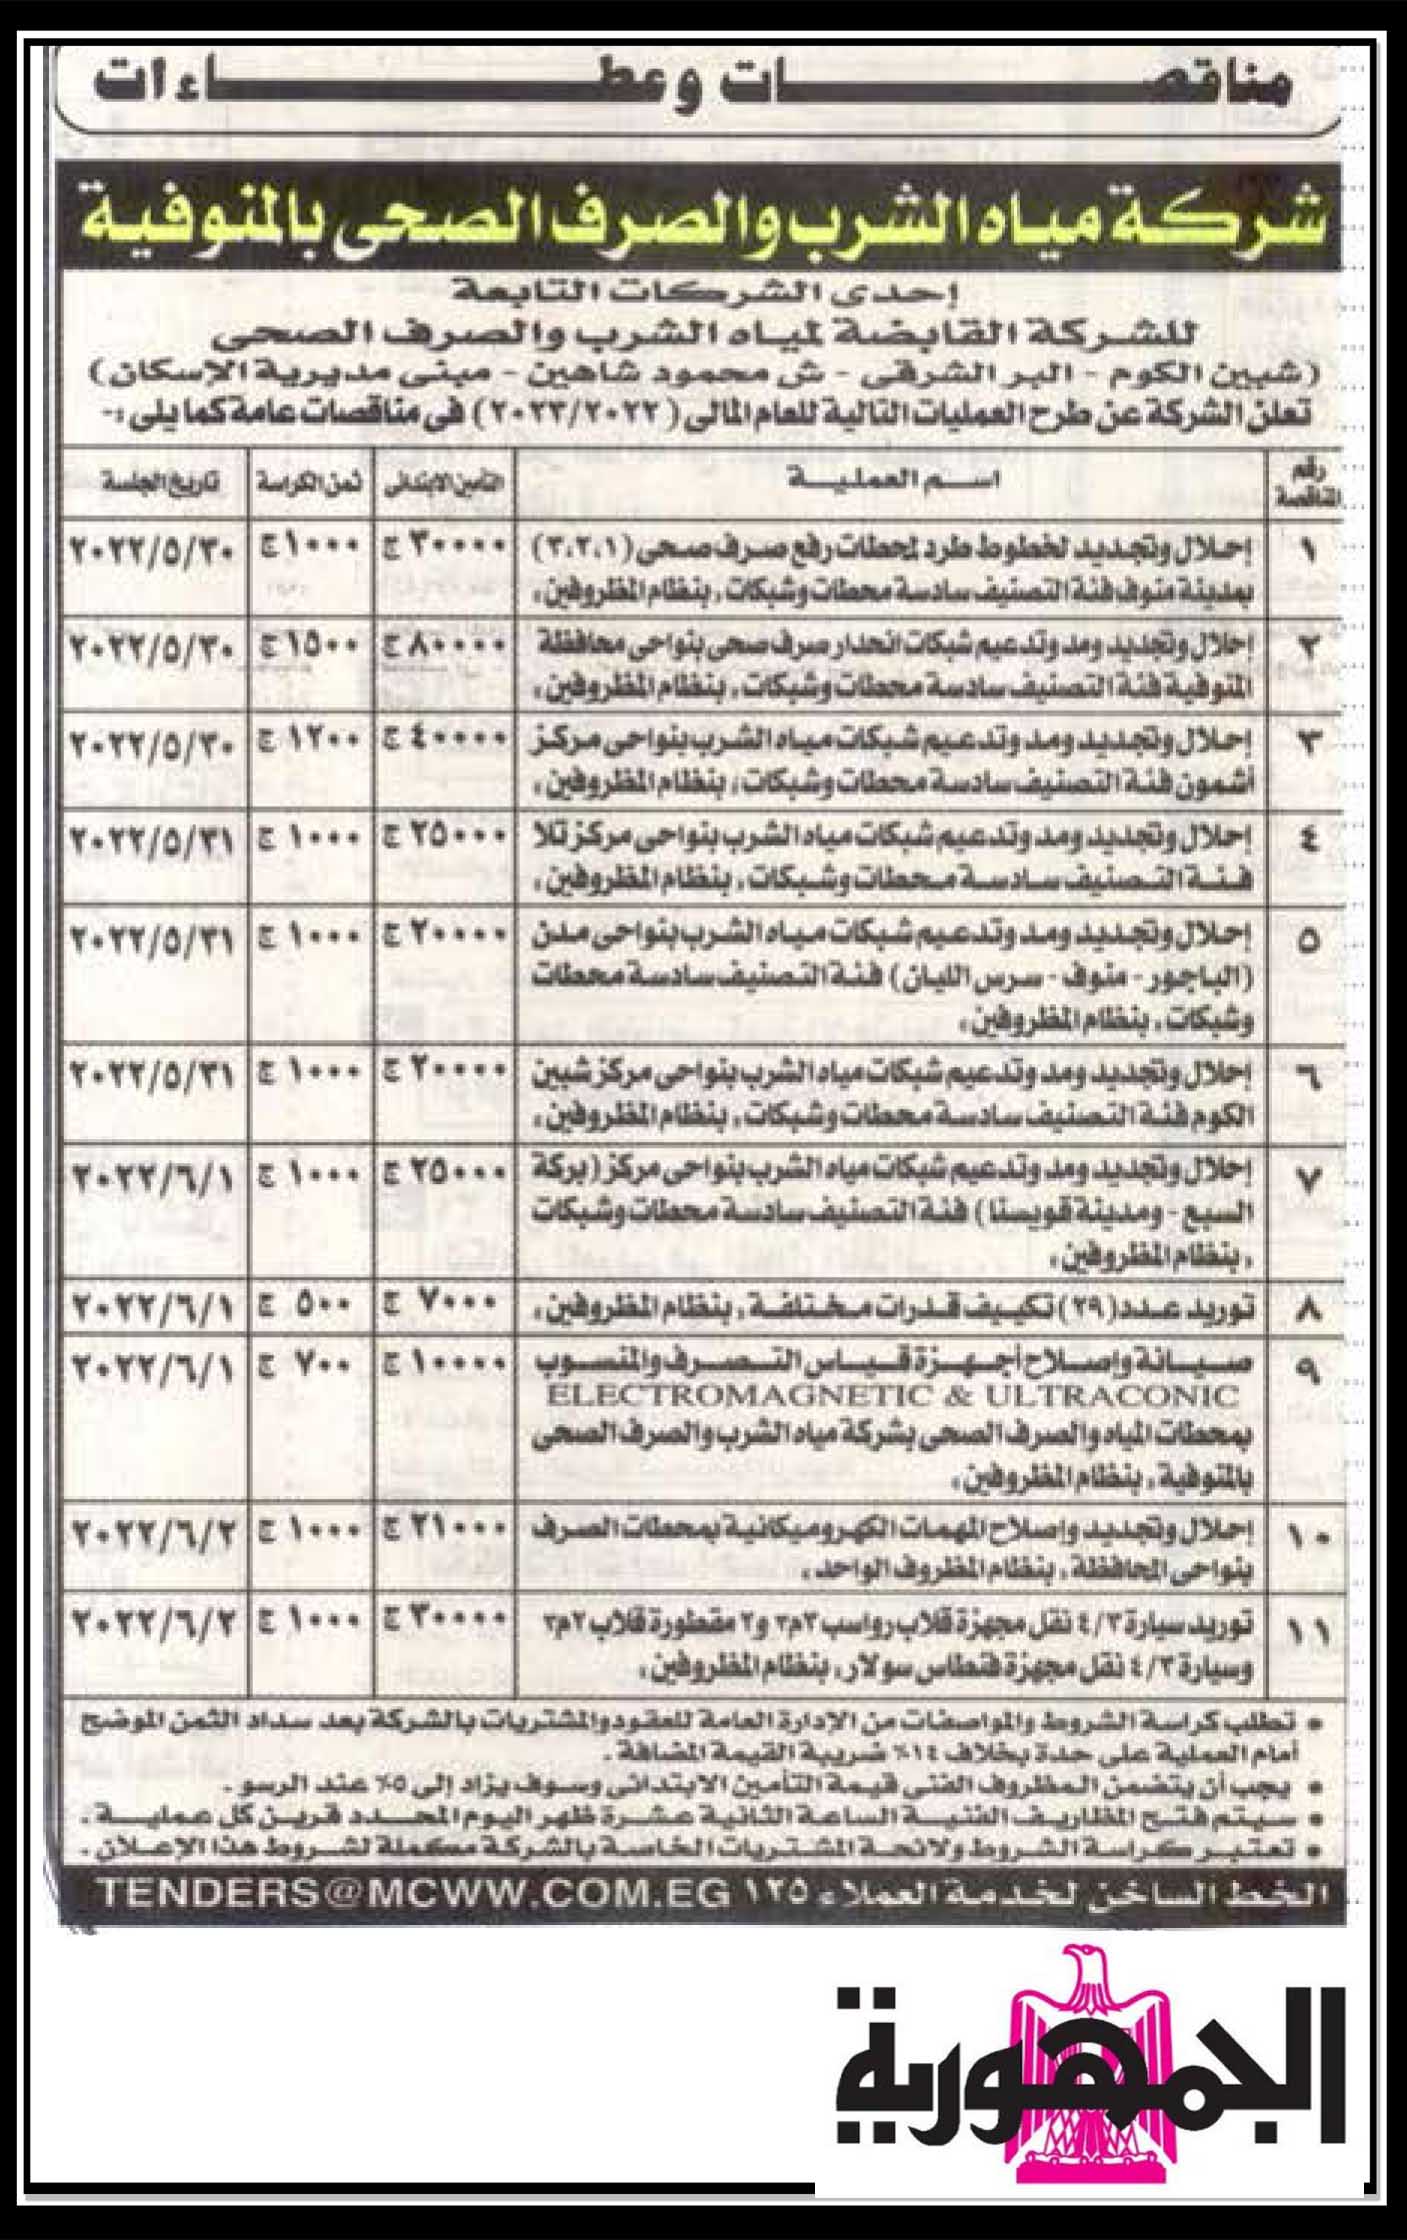 مناقصــات وعطــاءات
شركة مياه الشرب والصرف الصحى بالمنوفية
إحدى الشركات التابعة
للشركة القابضة لمياه الشرب والصرف الصحى
(شبين الكوم - البر الشرقى - ش محمود شاهين - مبنى مديرية الإسكان)
تعلن الشركة عن طرح العمليات التالية للعام المالى (٢٠٢٣/٢٠٢٢) فى مناقصات عامة كما يلى :-
رقم المناقصة اسم العملية التأمين الابتدائى ثمن الكراسة تاريخ الجلسة
١ إحلال وتجديد لخطوط طرد لمحطات رفع صرف صحى (٣،٢،١) ٣٠٠٠٠ ج ١٠٠٠ ج ٢٠٢٢/٥/٣٠
بمدينة منوف فئة التصنيف سادسة محطات وشبكات «بنظام المظروفين»
٢ إحلال وتجديد ومد وتدعيم شبكات انحدار صرف صحى بنواحى محافظة ٨٠٠٠٠ ج ١٥٠٠ ج ٢٠٢٢/٥/٣٠
المنوفية فئة التصنيف سادسة محطات وشبكات «بنظام المظروفين»
٣ إحلال وتجديد ومد وتدعيم شبكات مياه الشرب بنواحى مركز ٤٠٠٠٠ ج ١٢٠٠ ج ٢٠٢٢/٥/٣٠
أشمون فئة التصنيف سادسة محطات وشبكات «بنظام المظروفين»
٤ إحلال وتجديد ومد وتدعيم شبكات مياه الشرب بنواحى مركز تلا ٢٥٠٠٠ ج ١٠٠٠ ج ٢٠٢٢/٥/٣١
فئة التصنيف سادسة محطات وشبكات «بنظام المظروفين»
٥ إحلال وتجديد ومد وتدعيم شبكات مياه الشرب بنواحى مدن ٢٠٠٠٠ ج ١٠٠٠ ج ٢٠٢٢/٥/٣١
(الباجور - منوف - سرس الليان) فئة التصنيف سادسة محطات
وشبكات «بنظام المظروفين»
٦ إحلال وتجديد ومد وتدعيم شبكات مياه الشرب بنواحى مركز شبين ٢٠٠٠٠ ج ١٠٠٠ ج ٢٠٢٢/٥/٣١
الكوم فئة التصنيف سادسة محطات وشبكات «بنظام المظروفين»
٧ إحلال وتجديد ومد وتدعيم شبكات مياه الشرب بنواحى مركز (بركة ٢٥٠٠٠ ج ١٠٠٠ ج ٢٠٢٢/٦/١
السبع - ومدينة قويسنا) فئة التصنيف سادسة محطات وشبكات
«بنظام المظروفين»
٨ توريد عدد (٢٩) تكييف قدرات مختلفة «بنظام المظروفين» ٧٠٠٠ ج ٥٠٠ ج ٢٠٢٢/٦/١
٩ صيانة وإصلاح أجهزة قياس التصرف والمنسوب ١٠٠٠٠ ج ٧٠٠ ج ٢٠٢٢/٦/١
ELECTROMAGNETIC & ULTRACONIC
بمحطات المياه والصرف الصحى بشركة مياه الشرب والصرف الصحى
بالمنوفية «بنظام المظروفين»
١٠ إحلال وتجديد وإصلاح المهمات الكهروميكانية بمحطات الصرف ٢١٠٠٠ ج ١٠٠٠ ج ٢٠٢٢/٦/٢
بنواحى المحافظة «بنظام المظروف الواحد»
١١ توريد سيارة ٤/٣ نقل مجهزة قلاب رواسب ٣م٣ و٢ مقطورة قلاب ٢م٣ ٣٠٠٠٠ ج ١٠٠٠ ج ٢٠٢٢/٦/٢
وسيارة ٤/٣ نقل مجهزة فنطاس سولار «بنظام المظروفين»
• تطلب كراسة الشروط والمواصفات من الإدارة العامة للعقود والمشتريات بالشركة بعد سداد الثمن الموضح
أمام العملية على حدة بخلاف ١٤% ضريبة القيمة المضافة .
• يجب أن يتضمن المظروف الفنى قيمة التأمين الابتدائى وسوف يزاد إلى ٥% عند الرسو .
• سيتم فتح المظاريف الفنية الساعة الثانية عشرة ظهر اليوم المحدد قرين كل عملية .
• تعتبر كراسة الشروط ولائحة المشتريات الخاصة بالشركة مكملة لشروط هذا الإعلان .
الخط الساخن لخدمة العملاء ١٢٥ TENDERS@MCWW.COM.EG
الجمهورية